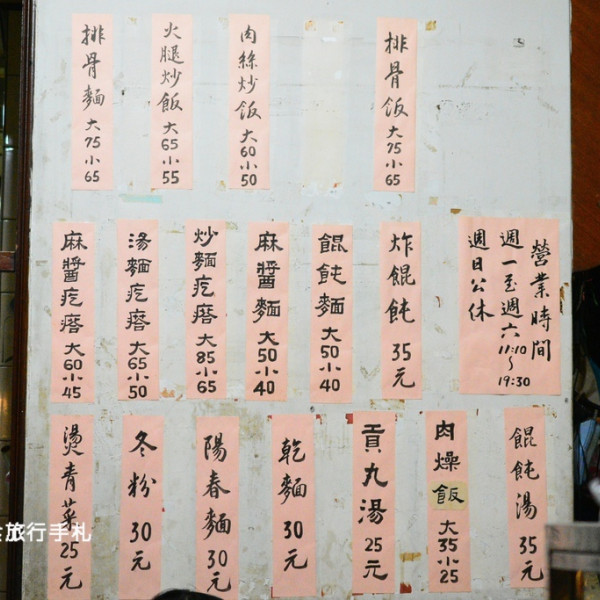 排骨飯 大75 小65
肉絲炒飯 大60 小50
火腿炒飯 大65 小55
排骨麵 大75 小65
營業時間
週一至週六 11:10～19:30
週日公休
炸餛飩 35元
餛飩麵 大50 小40
麻醬麵 大50 小40
炒麵疙瘩 大85 小65
湯麵疙瘩 大65 小50
麻醬疙瘩 大60 小45
餛飩湯 35元
肉燥飯 大35 小25
貢丸湯 25元
乾麵 30元
陽春麵 30元
冬粉 30元
燙青菜 25元
旅行手札